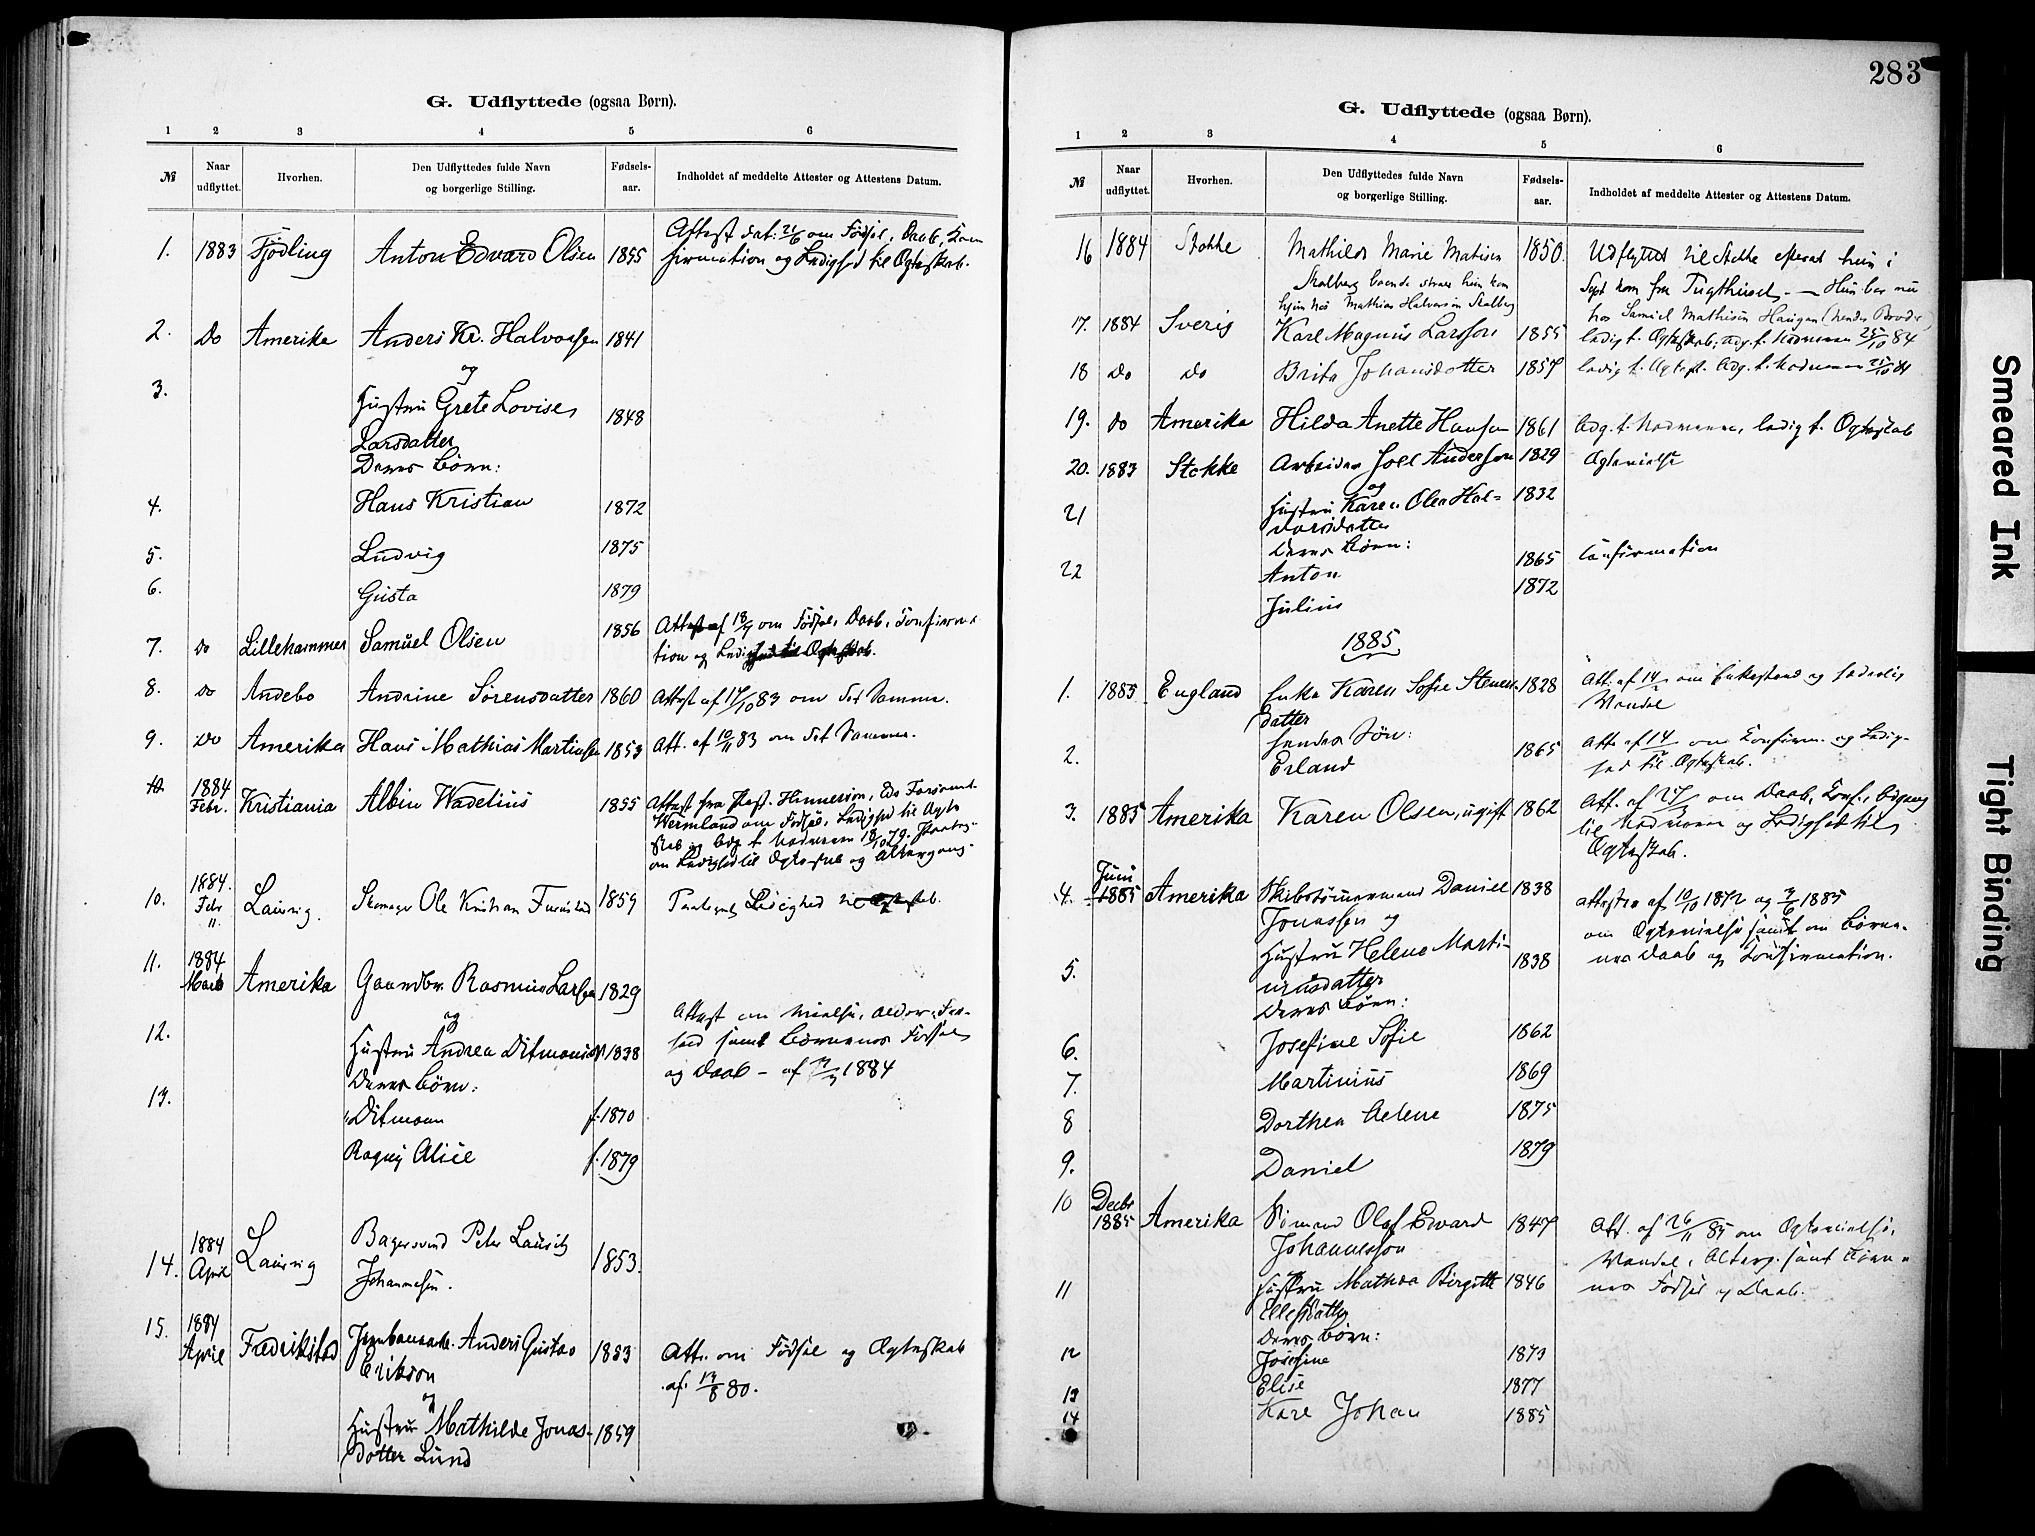 G. Udflyttede (ogsaa Børn).
1 2 3 4 5 6
№ Naar udflyttet. Hvorhen. Den Udflyttedes fulde Navn og borgerlige Stilling. Fødsels-aar. Indholdet af meddelte Attester og Attestens Datum.
1. 1883 Fjødling Anton Edvard Olsen 1855 Attest dat: 21/6 om Fødsel, Daab, Kon
firmation og Ledighed til Ægteskab.
2. Do Amerika Anders Kr. Halvorsen 1841
og
3. Hustru Grete Lovise 1848
Larsdatter
Deres Børn:
4. Hans Kristian 1872
5. Ludvig 1875
6. Gusta 1879
7. Do Lillehammer Samuel Olsen 1856 Attest af 18/9 om Fødsel, Daab, Confirma
tion og Ledighed til Ægteskab.
8. do Andebo Andrine Sørensdatter 1860 Attest af 17/10 83 om det Samme.
9. Do Amerika Hans Mathias Martinsen 1853 Att. af 10/11 83 om det Samme.
10 1884 Febr. Kristiania Albin Wadelius 1855 Attest fra Past.
Wermland om Fødsel, Ledighed til Ægte
skab og Adg. t. Nadveren 18/10 79.
om Ledighed til Ægteskab og Altergang.
10. 1884. Febr 11. Laurvig. Skomager Ole Kristian 1859 Ledighed til Ægteskab.
11. 1884 Marts Amerika Gaardbr. Rasmus Larsen 1829
og
12. Hustru Andrea 1838
Attest om Vielse, Alder,
samt Børnenes Fødsel
og Daab – af 1884
Deres Børn:
13. Ditmann f. 1870
Ragny Alice f. 1879
14. 1884 April Laurvig Bagersvend Peter Lauritz 1853.
Johannesen.
15. 1884 April Fredrikstad Anders Gustav 1853 Att. om Fødsel og Ægteskab
Erikson af 13/8 80.
og
Hustru Mathilde Jonas- 1859
dotter Lund
283
G. Udflyttede (ogsaa Børn).
1 2 3 4 5 6
№ Naar udflyttet. Hvorhen. Den Udflyttedes fulde Navn og borgerlige Stilling. Fødsels-aar. Indholdet af meddelte Attester og Attestens Datum.
16 1884 Stokke Mathilde Marie Matisen 1850. Udflyttet til Stokke efterat hun i
Skalberg boende strax hun kom Sept kom fra Tugthuset. — Hun bor nu
hjem hos Mathias Halvorsen Skalberg hos Samuel Mathisen Haugan (hendes Broder)
17. 1884 Sverig Karl Magnus Larsson 1855 ledig t. Ægteskab, adg. t. Nadveren 25/10 84
18 do do Brita Johansdotter 1857 ledig t. Ægtesk. Adg. t. Nadveren 25/10 84
19. do Amerika Hilda Anette Hansen 1861 Adg. t. Nadveren, ledig t. Ægteskab
20. 1883 Stokke Arbeider Joel Anderson 1829 Ægtevielse
og
21 Hustru Karen Olea Hal- 1832
vorsdatter
Deres Børn:
22 Anton 1865 Confirmation
Julius 1872
1885
1. 1885 England Enke Karen Sofie Steners- 1828 Att. af 14/2 om Enkestand og sædelig
datter Vandel
hendes Søn:
2. Erland 1865 Att. af 14/2 om Confirm. og Ledig-
hed til Ægteskab.
3. 1885 Amerika Karen Olsen, ugift 1862 Att. af 27/ om Daab, Konf., Adgang
til Nadveren og Ledighed til
Ægteskab.
4. Juni 1885 Amerika Skibstømmermand Daniel 1838 Attester af 10/10 1872 og 3/6 1885
Jonassen og om Ægtevielse samt om Børne-
5. Hustru Helene Marti- 1838 nes Daab og Confirmation.
nusdatter
Deres Børn:
6. Josefine Sofie 1862
7. Martinius 1869
8 Dorthea Helene 1875
9. Daniel 1879
10 Decbr 1885 Amerika Sømand Olaf Edvard 1847 Att. af 26/11 85 om Ægtevielse,
Johannesson Vandel, Alterg. samt Børne-
11 Hustru Mathea Birgitte 1846 nes Fødsel og Daab.
Ellefsdatter
Deres Børn:
12 Josefine 1873
13 Elise 1877
14 Karl Johan 1885
Smeared Ink
Tight Binding